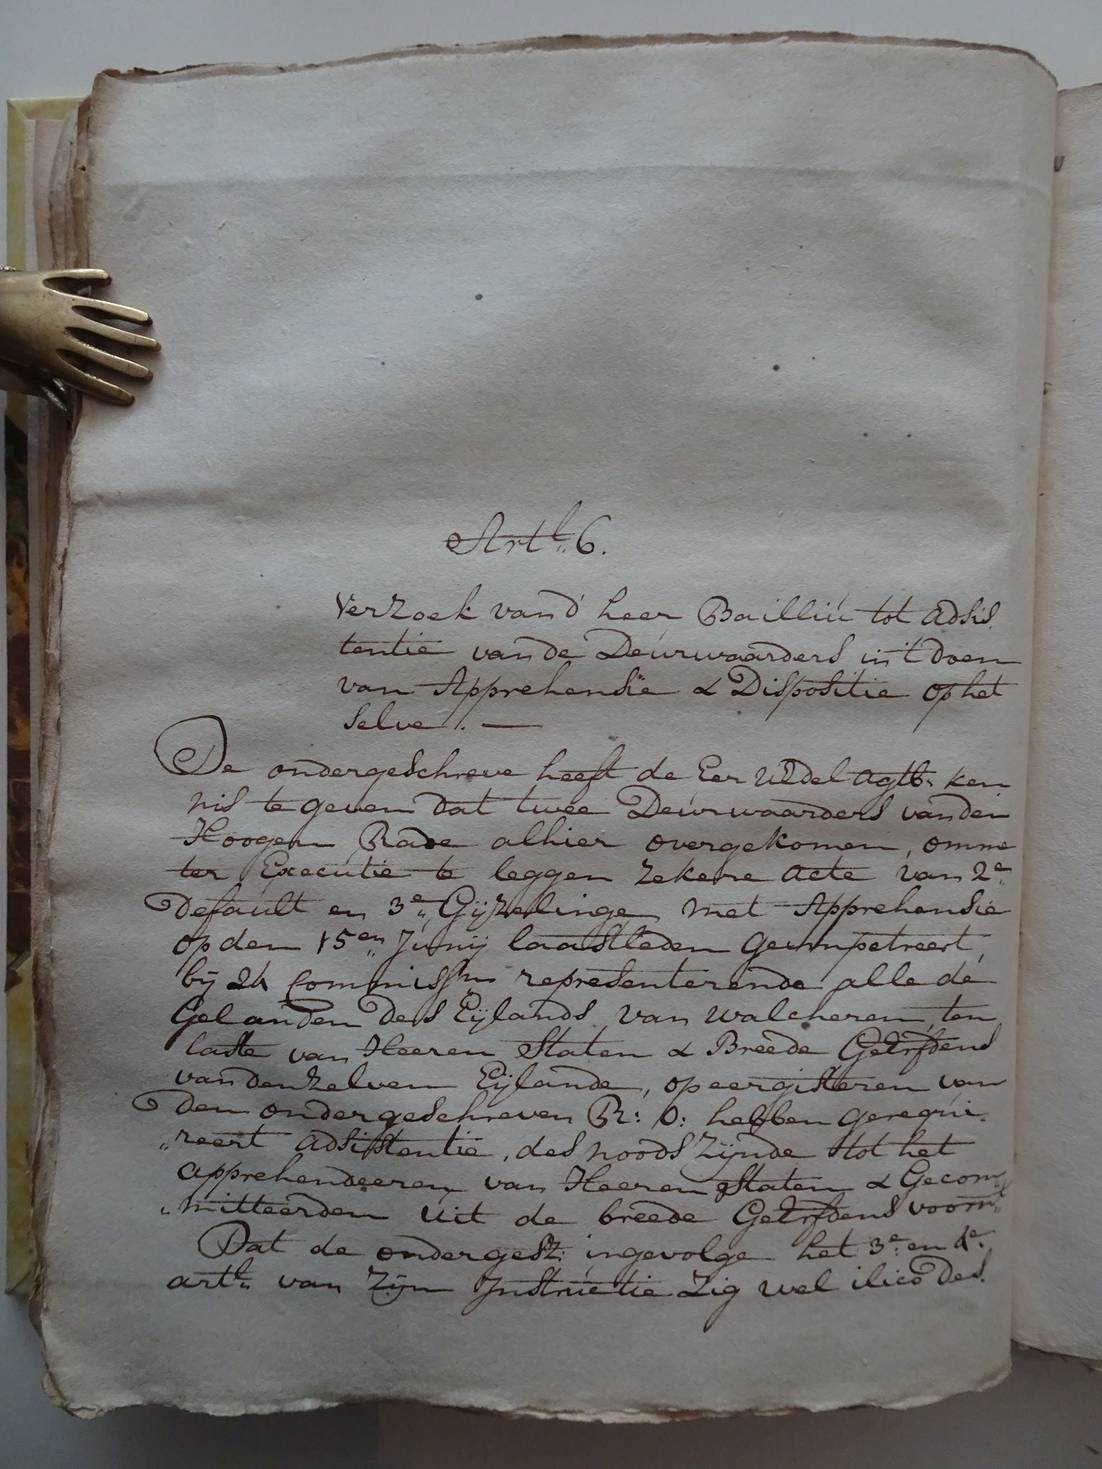 Artl. 6.
Verzoek van d' heer Bailliu tot adsis
tentie van de Deurwaarders in 't doen
van Apprehensie & Dispositie op het
selve. —
De ondergeschreve heeft de Eer UEdel Agtb: ken
nis te geven dat twee Deurwaarders van den
Hoogen Rade alhier overgekomen, omme
ter Executie te leggen zekere Acte van 2e
Default en 3e Gijzelinge met Apprehensie
op den 15en Junij laastleden geimpetreert,
bij 24 Commissn representerende alle de
Gelanden des Eijlands van Walcheren, ten
laste van Heeren Staten & Breede Geërfdens
van denzelven Eijlande, op eergisteren van
den ondergeschreven R: O: hebben gerequi
„reert adsistentie, des noods zijnde tot het
apprehendeeren van Heeren Staten & Gecom
„mitteerden uit de breede Geërfdens voornt
Dat de ondergesz: ingevolge het 3e en 4e
artl van zijn Instructie zig wel ilico des